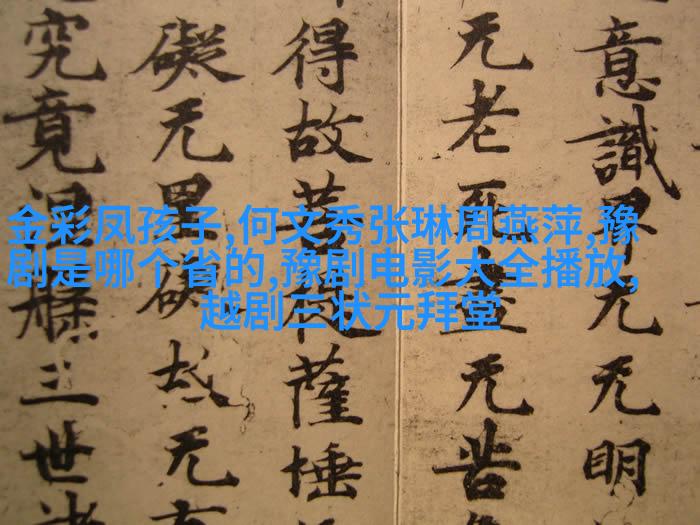 金彩凤孩子,何文秀张琳周燕萍,豫
剧是哪个省的,豫剧电影大全播放,
越剧三状元拜堂
意識界无无明
无老死盡无苦
得故菩提薩埵
礙无罣礙故无有
究竟涅槃三世諸